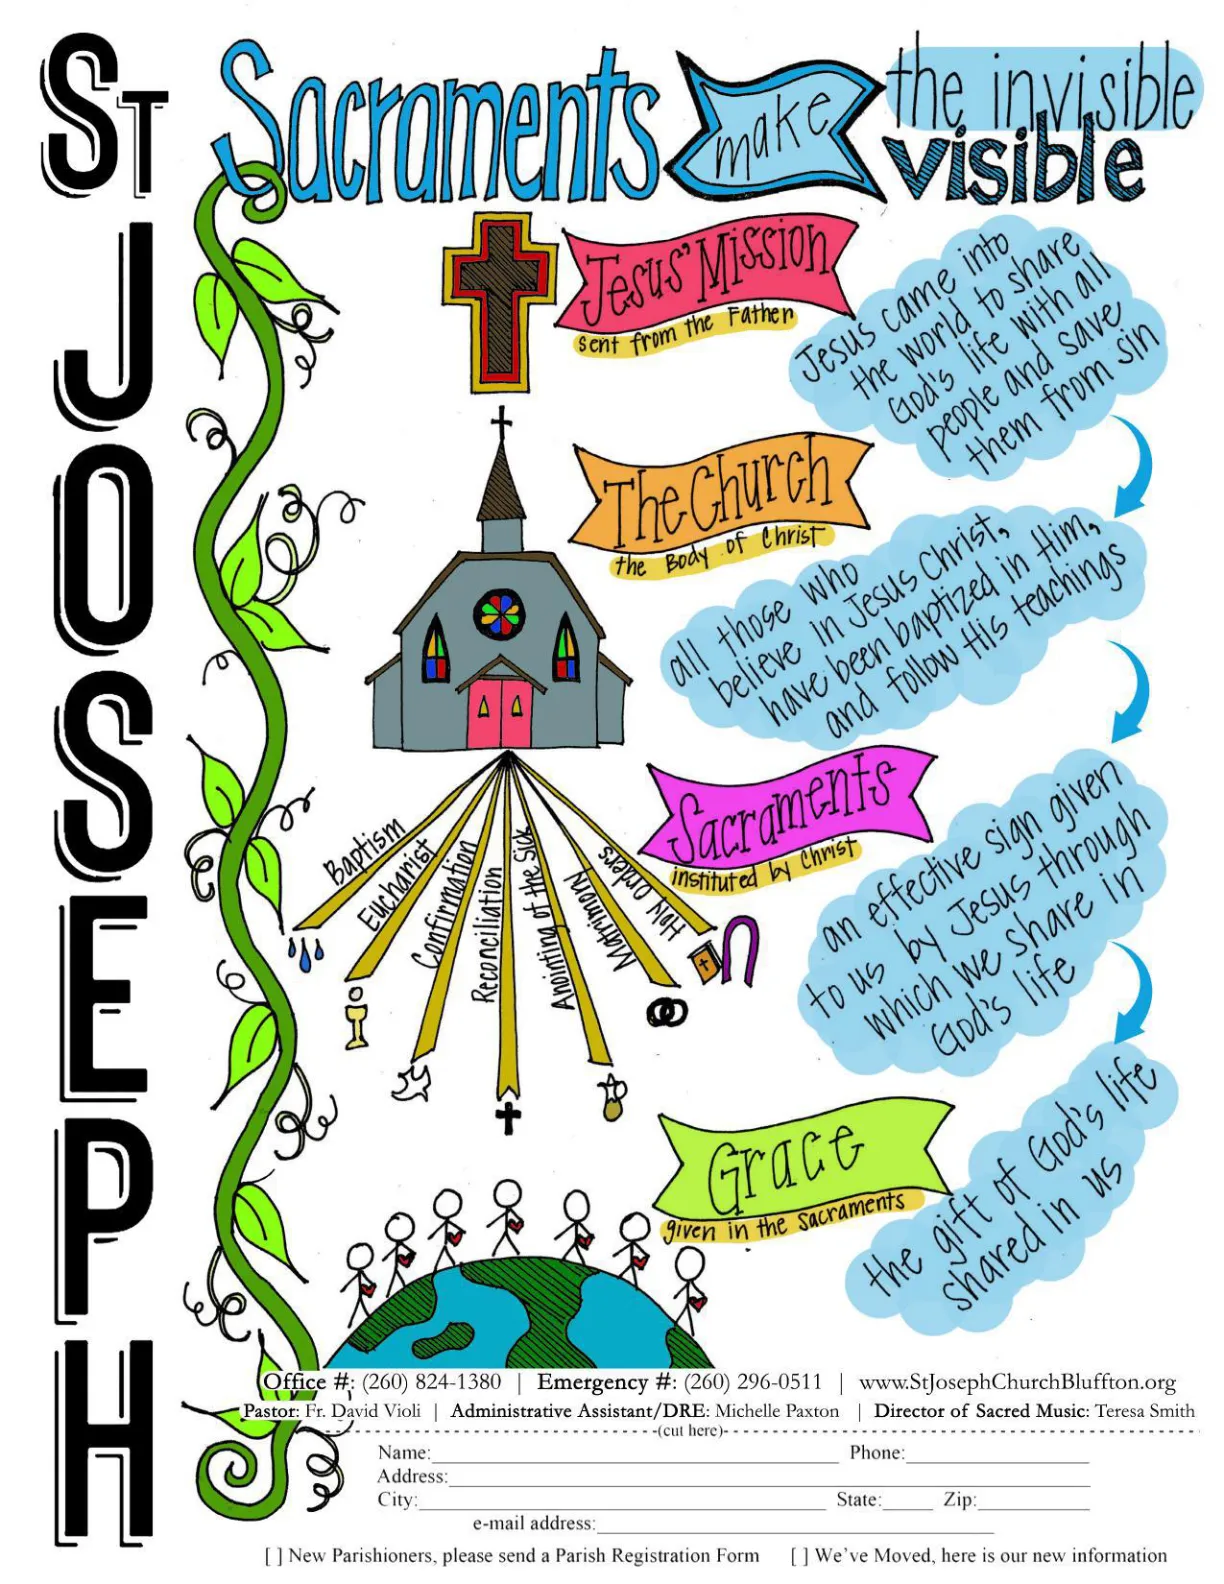 ST JOSEPH
Sacraments make the invisible
visible
Jesus' Mission
sent from the Father
Jesus came into
the world to share
God's life with all
people and save
them from sin
The Church
the Body of Christ
all those who
believe in Jesus Christ,
have been baptized in Him,
and follow His teachings
Sacraments
instituted by Christ
an effective sign given
to us by Jesus through
which we share in
God's life
Baptism
Eucharist
Confirmation
Reconciliation
Anointing of the Sick
Matrimony
Holy Orders
Grace
given in the sacraments
the gift of God's life
shared in us
Office #: (260) 824-1380 | Emergency #: (260) 296-0511 | www.StJosephChurchBluffton.org
Pastor: Fr. David Violi | Administrative Assistant/DRE: Michelle Paxton | Director of Sacred Music: Teresa Smith
(cut here)
Name: Phone:
Address:
City: State: Zip:
e-mail address:
[ ] New Parishioners, please send a Parish Registration Form [ ] We've Moved, here is our new information